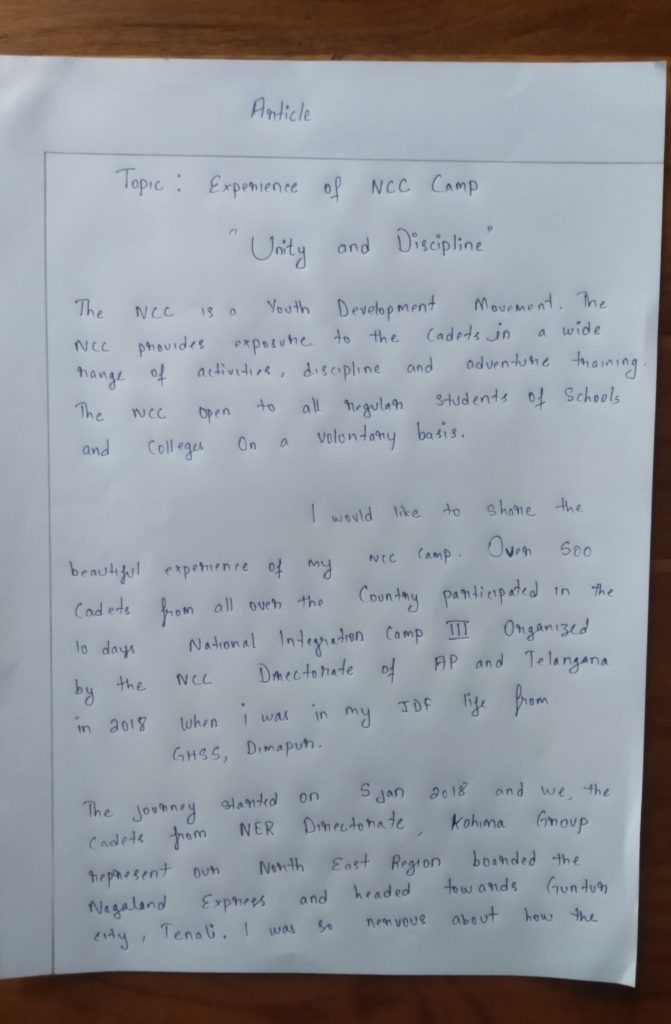 Article
Topic : Experience of NCC Camp
"Unity and Discipline"
The NCC is a Youth Development Movement. The
NCC provides exposure to the Cadets in a wide
range of activities, discipline and adventure training.
The NCC Open to all regular students of Schools
and Colleges On a volontary basis.
I would like to share the
beautiful experience of my NCC Camp. Over 500
Cadets from all over the Country participated in the
10 days National Integration Camp III Organized
by the NCC Directorate of AP and Telangana
in 2018 when i was in my JDF life from
GHSS, Dimapur.
The journey started on 5 Jan 2018 and we, the
Cadets from NER Directorate, Kohima Group
represent our North East Region boarded the
Nagaland Express and headed towards Guntur
city, Tenali. I was so nervous about how the